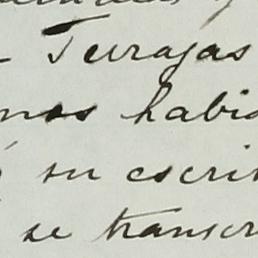 Terrajas
nos habi
su escri
se transcr